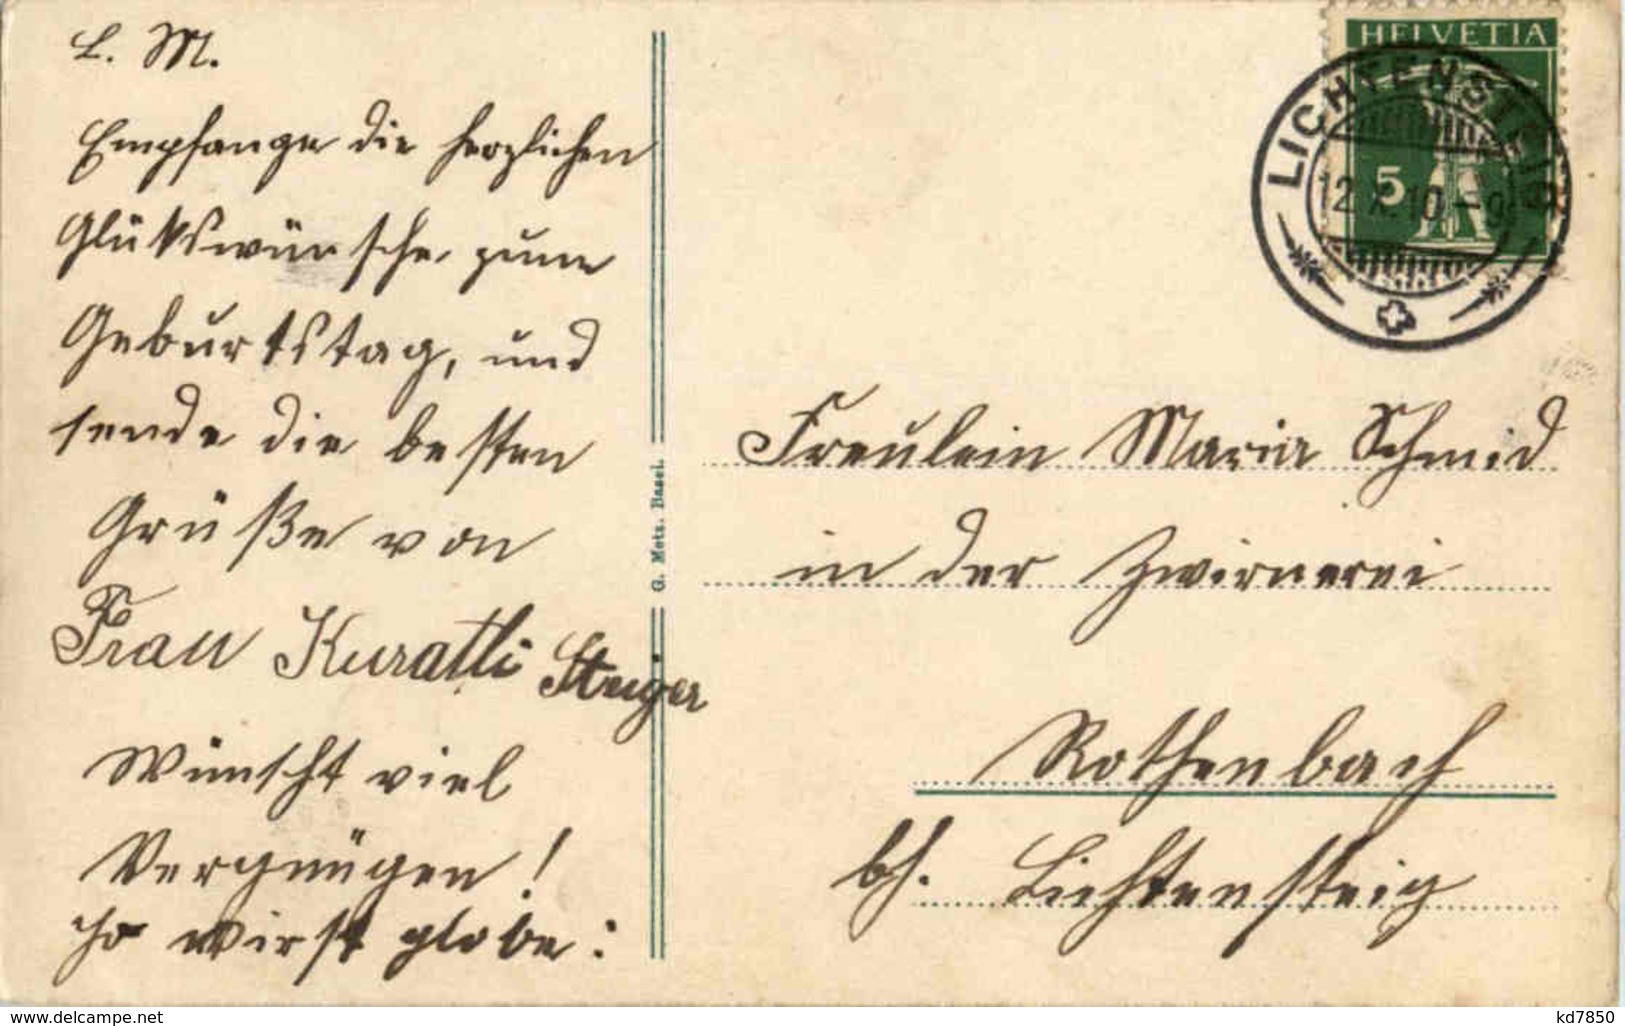 L. M.
Empfange die herzlichen
Glükswünsche zum
Geburtstag, und
sende die besten
Grüße von
Frau Kuratli Steiger
Wünscht viel
Vergnügen!
wirst globe:
G. Metz, Basel.
HELVETIA
5
LICHTENSTEIG
12.X.10.-9
Freulein Maria Schmid
in der Zwirnerei
Rothenbach
bh. Lichtensteig
www.delcampe.net
kd7850